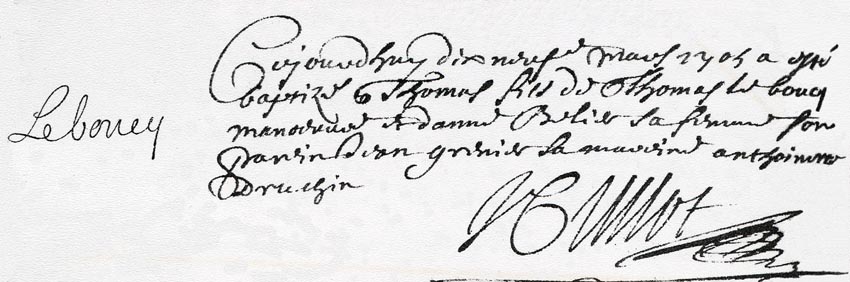 Lebouey
Cejourdhuy dix neufe mars 1705 a esté
baptizé Thomas fils de Thomas le boucq
manoeuvre et danne Belier sa femme son
parein Jean grenier sa mareine anthoinette
Druchin